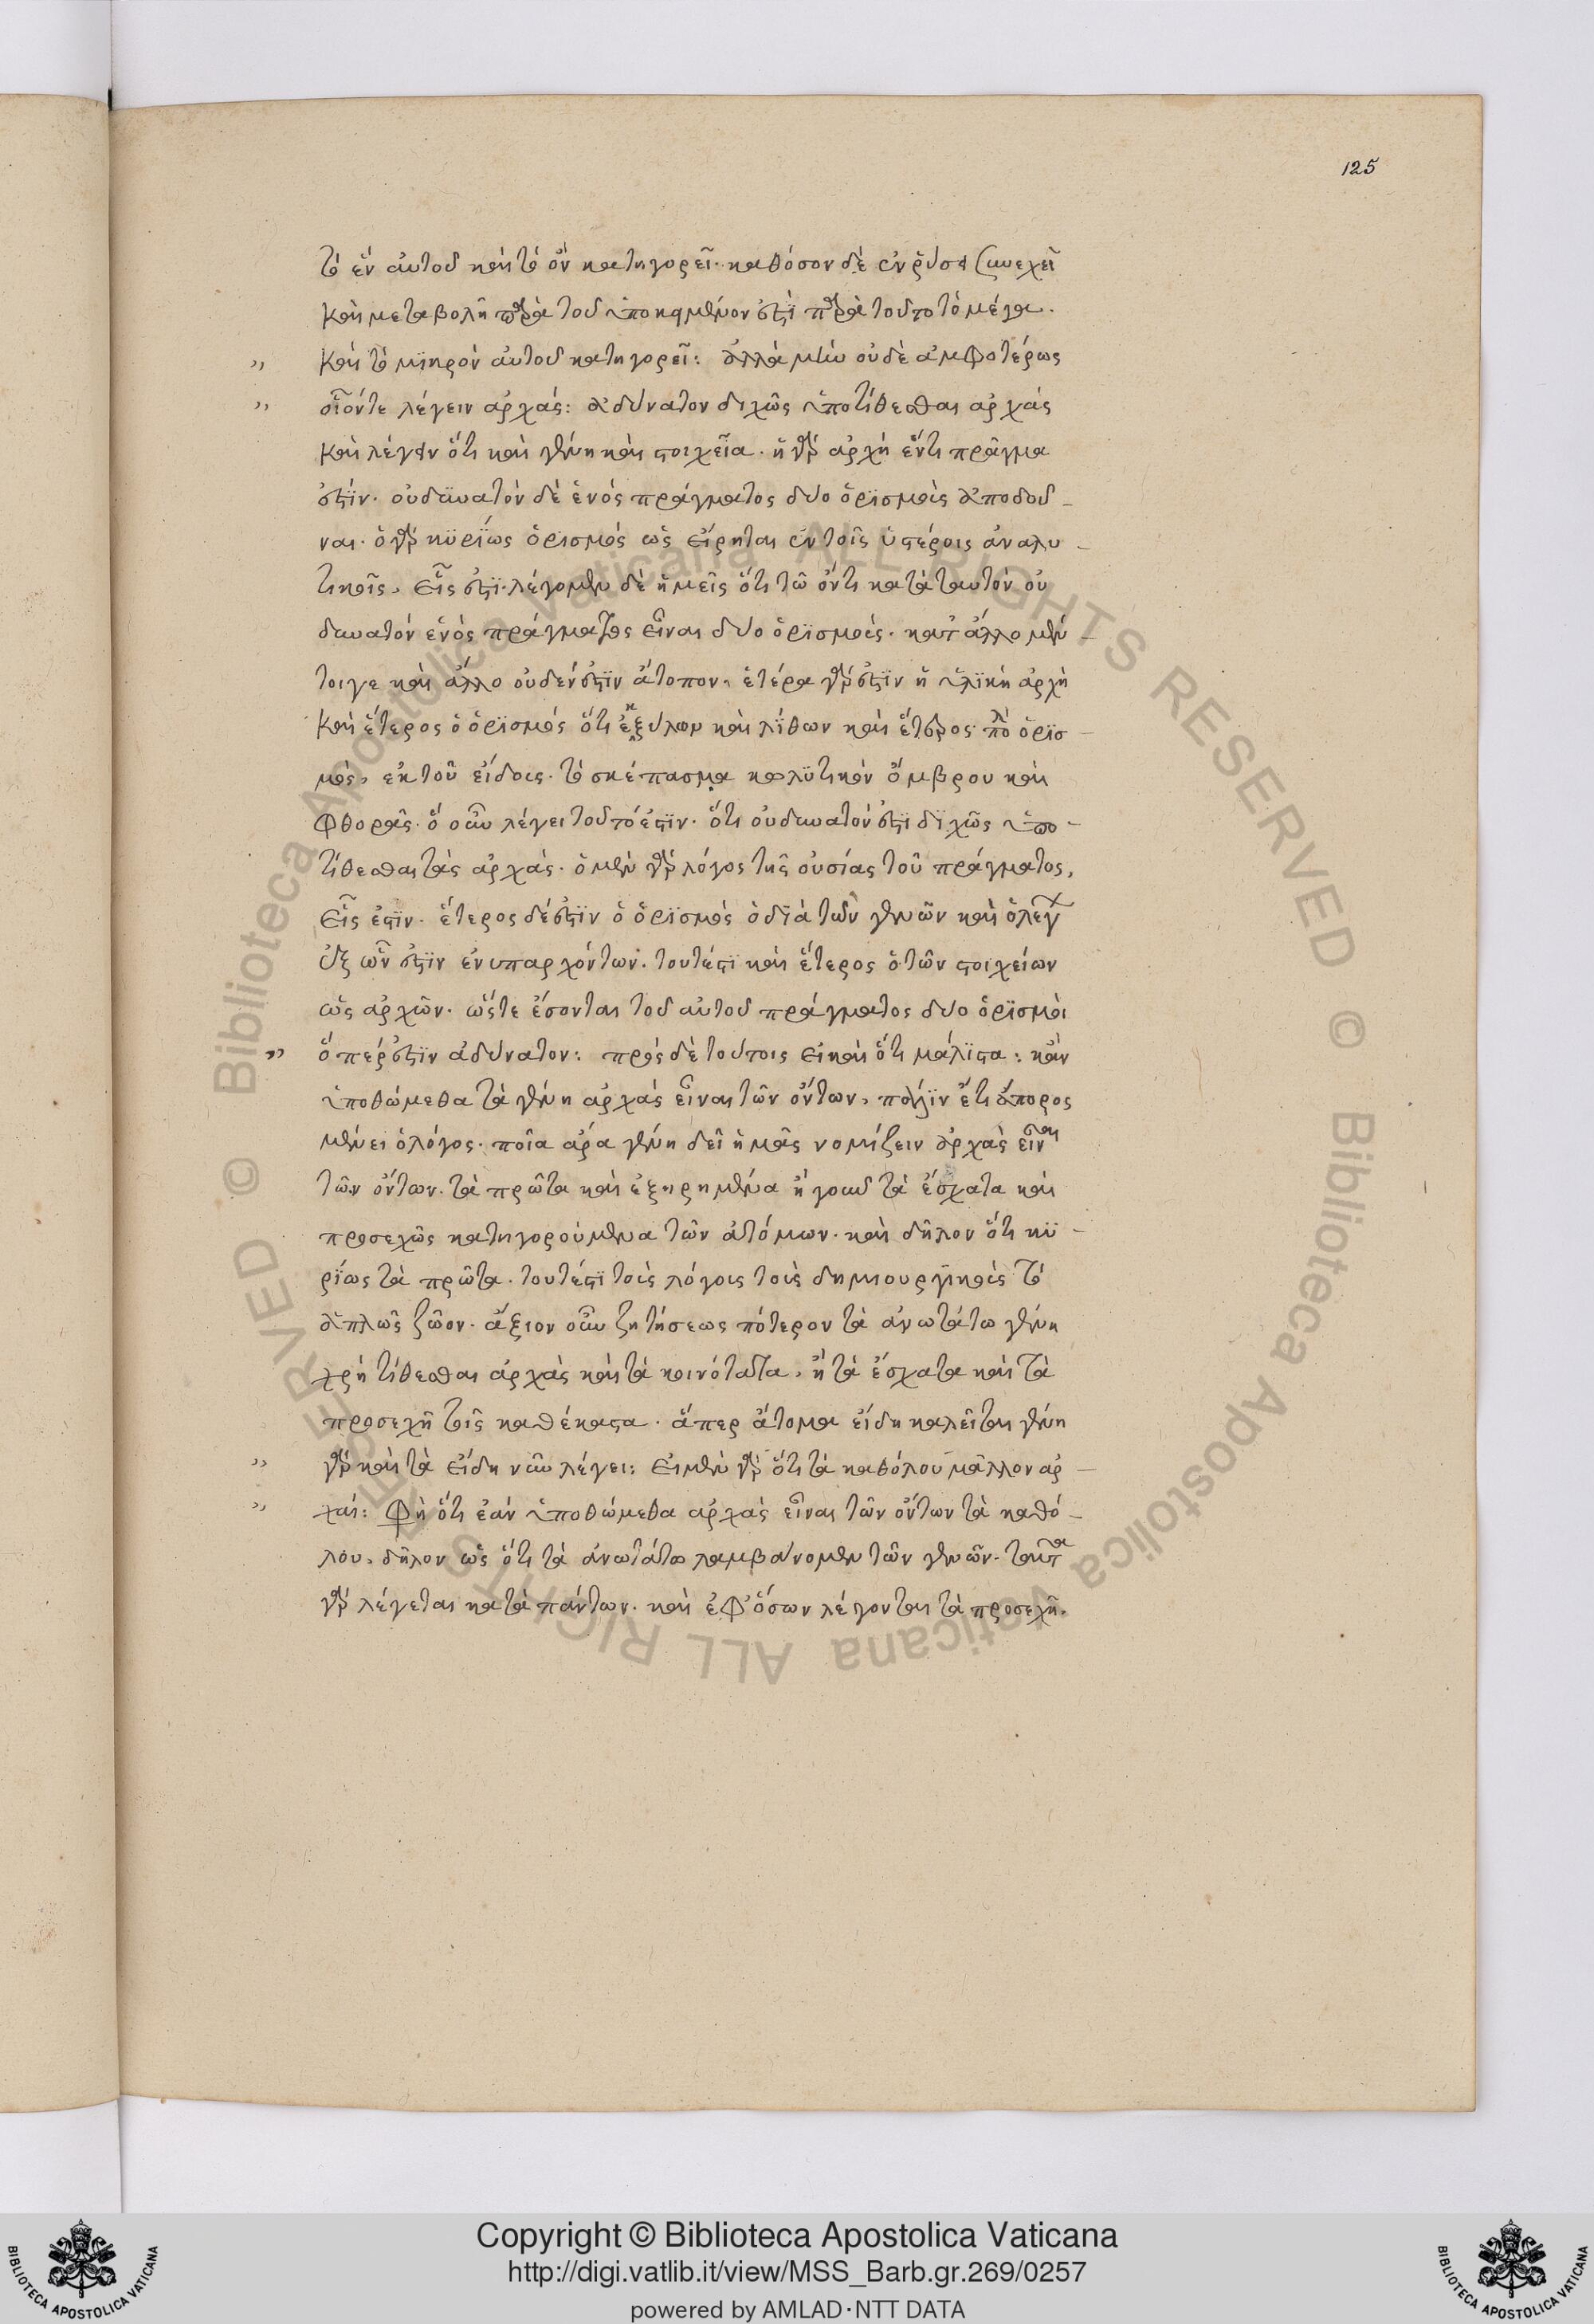 125
τὸ ἓν αὐτοῦ καὶ τὸ ὂν κατηγορεῖ· καθόσον δὲ ἐν ῥύσει συνεχεῖ
καὶ μεταβολῆ παρὰ τοῦ ὑποκειμένου ἐστὶ παρὰ τοῦτο τὸ μέγα.
„ καὶ τὸ μικρὸν αὐτοῦ κατηγορεῖ: ἀλλὰ μὴν οὐδὲ ἀμφοτέρως
„ οἷόντε λέγειν ἀρχάς: ἀδύνατον διχῶς ὑποτίθεσθαι ἀρχάς
καὶ λέγειν ὅτι καὶ γένη καὶ στοιχεῖα· ἡ γὰρ ἀρχὴ ἕν τι πρᾶγμα
ἐστίν· οὐ δυνατὸν δὲ ἑνὸς πράγματος δύο ὁρισμοὺς ἀποδοῦ-
ναι· ὁ γὰρ κυρίως ὁρισμός ὡς εἴρηται ἐν τοῖς ὑστέροις ἀναλυ-
τικοῖς, εἷς ἐστι· λέγομεν δὲ ἡμεῖς ὅτι τῶ ὄντι κατὰ ταυτὸν οὐ
δυνατόν ἑνὸς πράγματος εἶναι δύο ὁρισμούς· κατ' ἄλλο μέν-
τοιγε καὶ ἄλλο οὐδέν ἐστιν ἄτοπον, ἑτέρα γάρ ἐστιν ἡ ὑλικὴ ἀρχὴ
καὶ ἕτερος ὁ ὁρισμός ὅτι ἐκ ξύλων καὶ λίθων καὶ ἕτερος πάλιν ὁ ὁρισ-
μός, ἐκ τοῦ εἴδους· τὸ σκέπασμα κωλυτικόν ὄμβρου καὶ
φθορᾶς· ὃ οὖν λέγει τοῦτό ἐστιν· ὅτι οὐ δυνατόν ἐστι διχῶς ὑπο-
τίθεσθαι τὰς ἀρχάς· ὁ μὲν γὰρ λόγος τῆς οὐσίας τοῦ πράγματος,
εἷς ἐστιν· ἕτερος δέ ἐστιν ὁ ὁρισμός ὁ διὰ τῶν γενῶν καὶ ὁ λέγων
ἐξ ὧν ἐστιν ἐνυπαρχόντων· τουτέστι καὶ ἕτερος ὁ τῶν στοιχείων
ὡς ἀρχῶν· ὥστε ἔσονται τοῦ αὐτοῦ πράγματος δύο ὁρισμοὶ
„ ὅπερ ἐστιν ἀδύνατον: πρὸς δὲ τούτοις εἰ καὶ ὅτι μάλιστα: κἂν
ὑποθώμεθα τὰ γένη ἀρχάς εἶναι τῶν ὄντων, πάλιν ἔτι ἄπορος
μένει ὁ λόγος· ποῖα ἄρα γένη δεῖ ἡμᾶς νομίζειν ἀρχὰς εἶναι
τῶν ὄντων· τὰ πρῶτα καὶ ἐξηρημένα ἤγουν τὰ ἔσχατα καὶ
προσεχῶς κατηγορούμενα τῶν ἀτόμων· καὶ δῆλον ὅτι κυ-
ρίως τὰ πρῶτα· τουτέστι τοὺς λόγους τοὺς δημιουργικοὺς τὸ
ἁπλῶς ζῶον· ἄξιον οὖν ζητήσεως πότερον τὰ ἀνωτάτω γένη
χρὴ τίθεσθαι ἀρχὰς καὶ τὰ κοινότατα, ἢ τὰ ἔσχατα καὶ τὰ
προσεχῆ τοῖς καθέκαστα· ἅπερ ἄτομα εἴδη καλεῖται γένη
„ γὰρ καὶ τὰ εἴδη νῦν λέγει: εἰ μὲν γὰρ ὅτι τὰ καθόλου μᾶλλον ἀρ-
„ χαί: Φὴ ὅτι ἐὰν ὑποθώμεθα ἀρχάς εἶναι τῶν ὄντων τὰ καθό-
λου, δῆλον ὡς ὅτι τὰ ἀνωτάτω λαμβάνομεν τῶν γενῶν· ταῦτα
γὰρ λέγεται κατὰ πάντων· καὶ ἐφ' ὅσων λέγονται τὰ προσεχῆ.
Copyright © Biblioteca Apostolica Vaticana
http://digi.vatlib.it/view/MSS_Barb.gr.269/0257
powered by AMLAD·NTT DATA
BIBLIOTECA APOSTOLICA VATICANA
BIBLIOTECA APOSTOLICA VATICANA
© Biblioteca Apostolica Vaticana ALL RIGHTS RESERVED
© Biblioteca Apostolica Vaticana ALL RIGHTS RESERVED